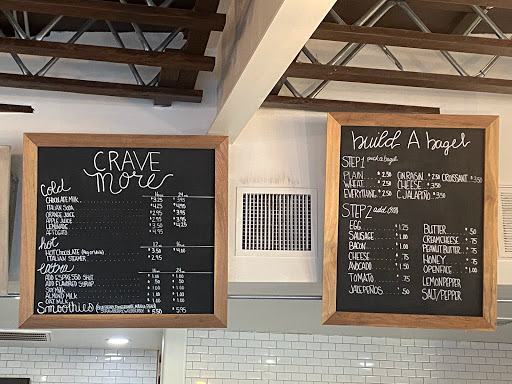 CRAVE
more
Cold 12oz 24oz
CHOCOLATE MILK $3.25 3.95
ITALIAN SODA $4.25 4.95
ORANGE JUICE $2.95 3.95
APPLE JUICE $2.95 3.95
LEMONADE $3.50 4.95
AFFOGATO $4.95
hot
HOT CHOCOLATE $3.50 4.00
ITALIAN STEAMER $2.95
extra
ADD ESPRESSO SHOT
ADD FLAVORED SYRUP
SOY MILK
ALMOND MILK
OAT MILK
Smoothies $5.50 5.95
build A bagel
STEP 1 pick a bagel
PLAIN $2.50 CIN RAISIN $2.50 CROISSANT $3.50
WHEAT $2.50 CHEESE $3.50
EVERYTHING $2.50 C. JALAPEÑO $3.50
STEP 2 add ons
EGG $1.25 BUTTER $.50
SAUSAGE $1.00 CREAMCHEESE $.75
BACON $1.00 PEANUT BUTTER $.75
CHEESE $.75 HONEY $.75
AVOCADO $1.50 OPENFACE $1.00
TOMATO $.75 LEMON PEPPER
JALEPEÑOS $.50 SALT/PEPPER